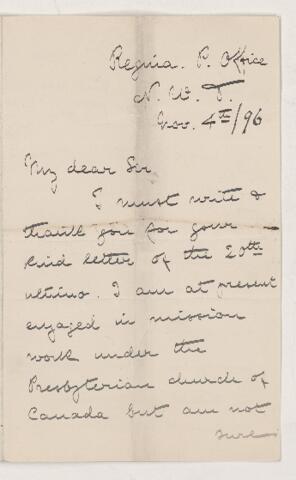 Regina. P. Office
N. W. T.
Nov. 4th/96
My dear Sir
I must write &
thank you for your
kind letter of the 20th
ultimo. I am at present
engaged in mission
work under the
Presbyterian church of
Canada but am not
sure